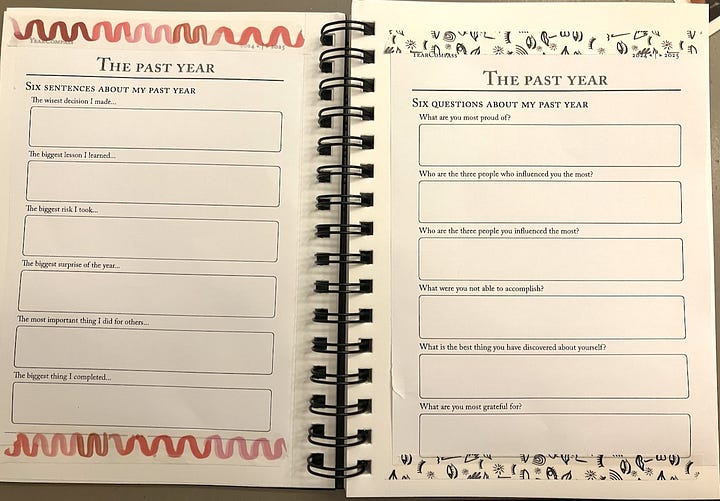 YEARCOMPASS
2024 • | • 2025
THE PAST YEAR
SIX SENTENCES ABOUT MY PAST YEAR
The wisest decision I made...
The biggest lesson I learned...
The biggest risk I took...
The biggest surprise of the year...
The most important thing I did for others...
The biggest thing I completed...
YEARCOMPASS
2024 • | • 2025
THE PAST YEAR
SIX QUESTIONS ABOUT MY PAST YEAR
What are you most proud of?
Who are the three people who influenced you the most?
Who are the three people you influenced the most?
What were you not able to accomplish?
What is the best thing you have discovered about yourself?
What are you most grateful for?